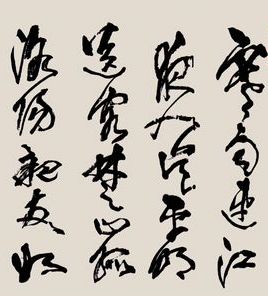 寒雨連江
夜入吴平明
送客楚山孤
洛陽親友如